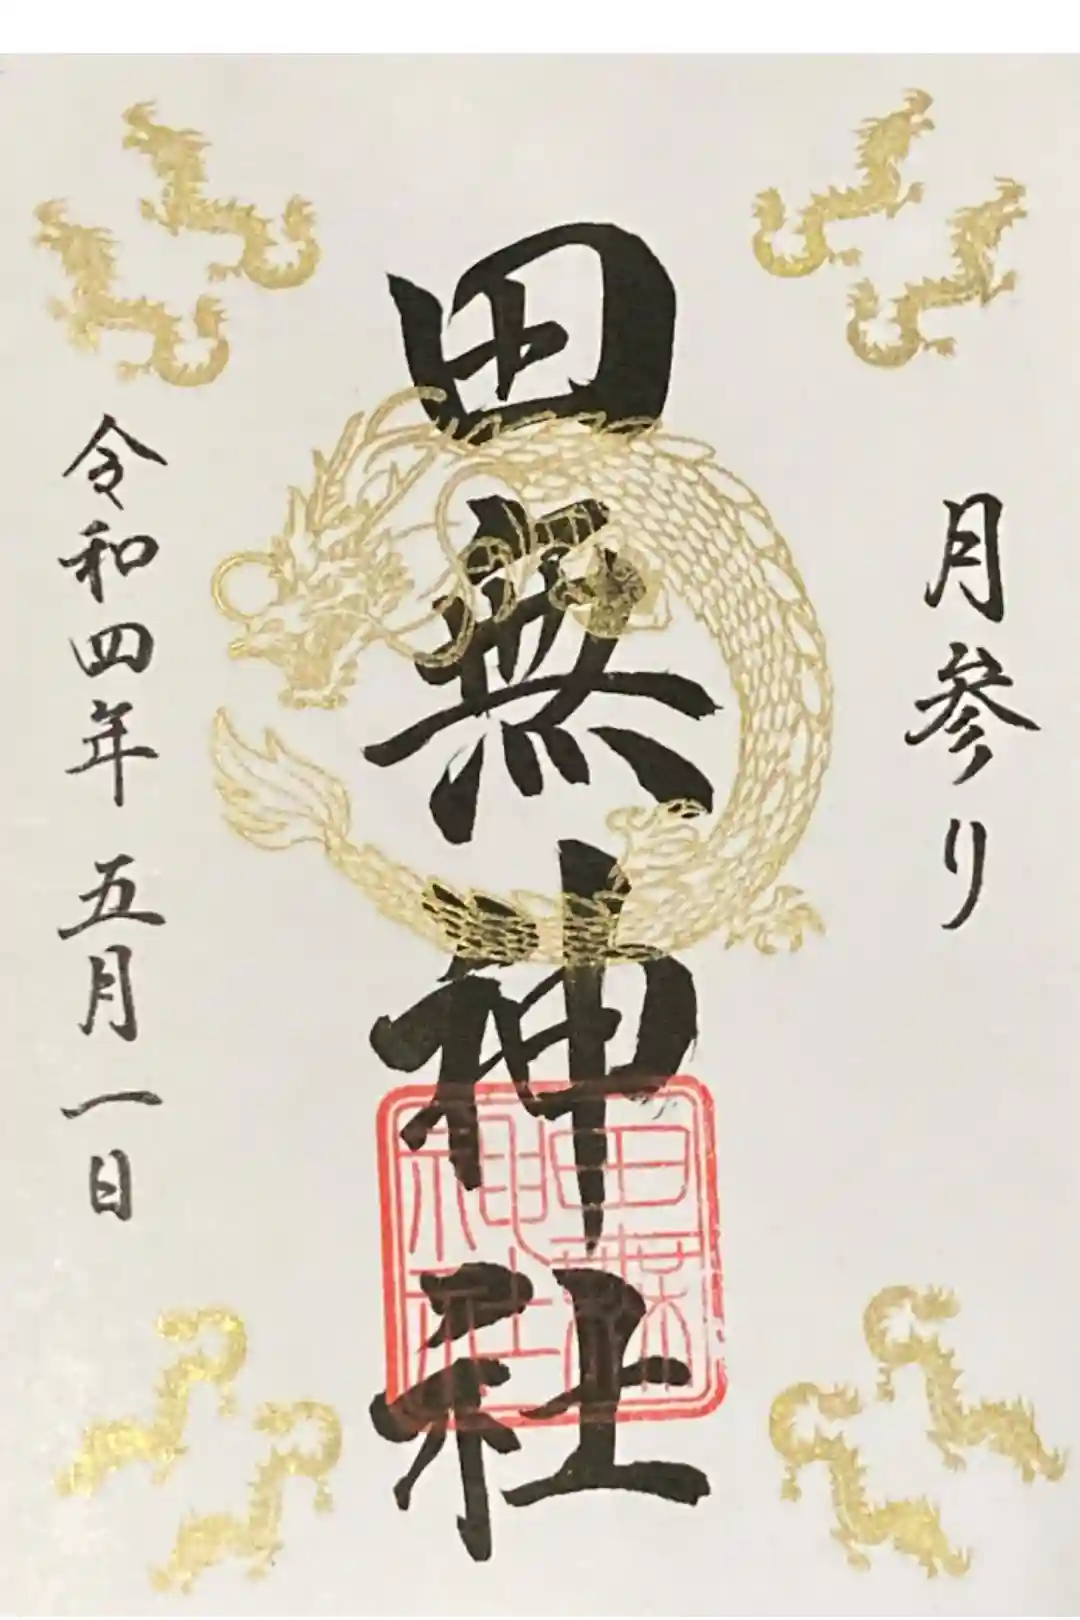 月参り
田無神社
田無
神社
令和四年 五月一日